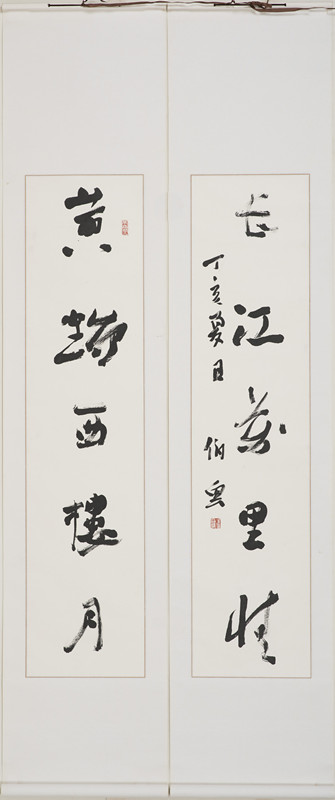 长江萬里情
丁亥夏日 伯
黄鶴西樓月